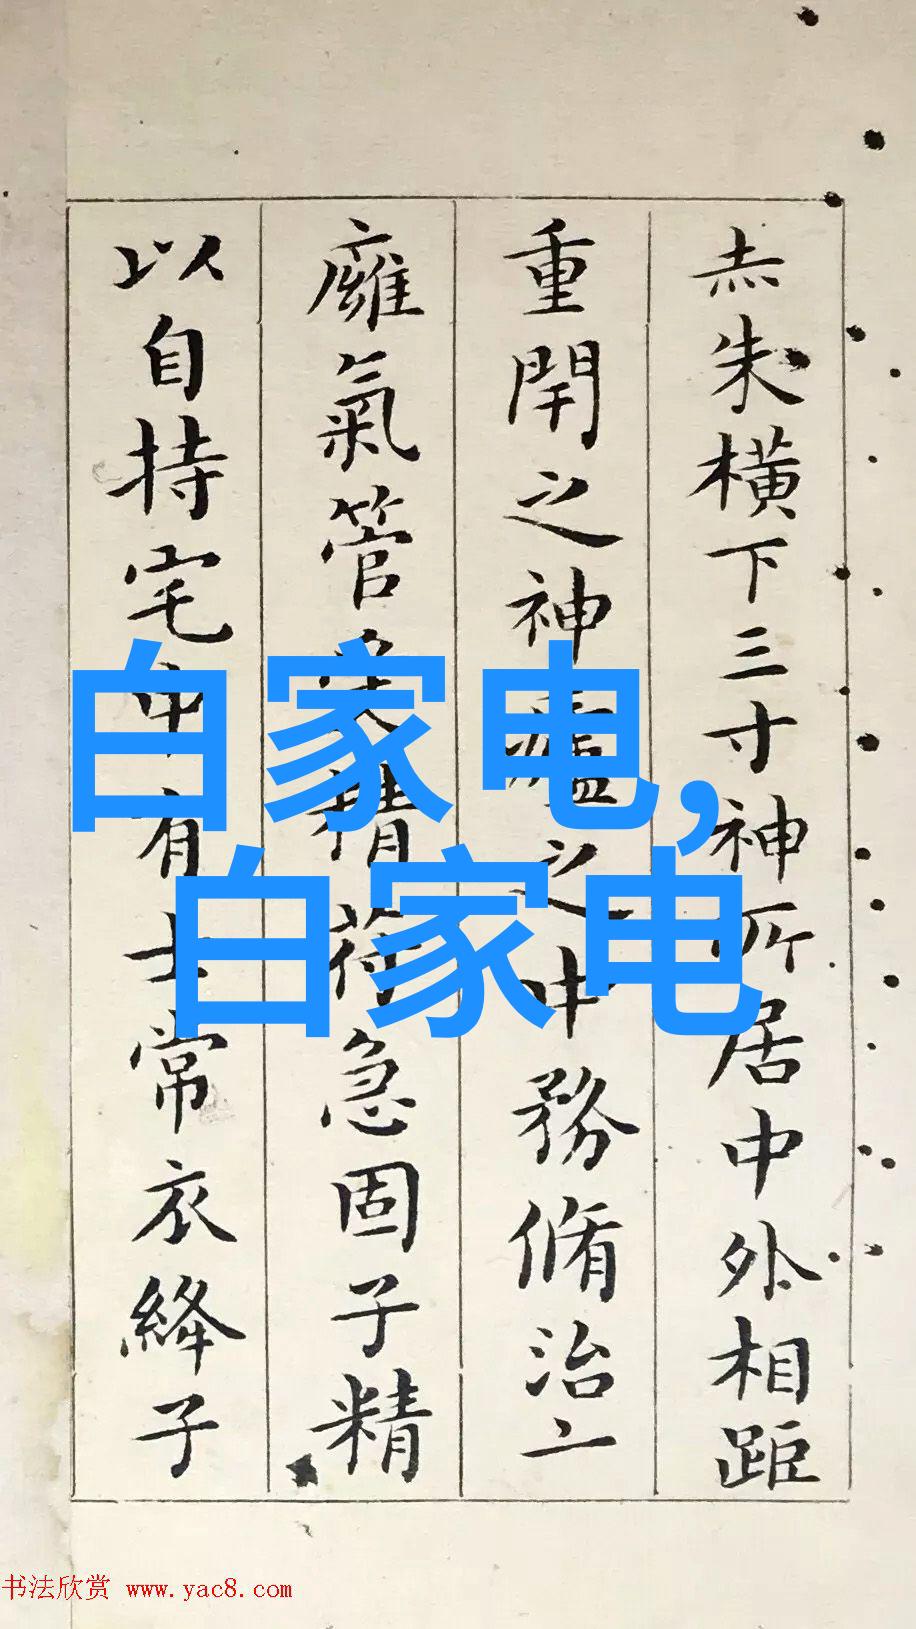 赤朱橫下三寸神所居中外相距
重閇之神廬之中務脩治亠
廱氣管受精苻急固子精
以自持宅中有士常衣絳子
白家电,
白家电
书法欣赏 www.yac8.com